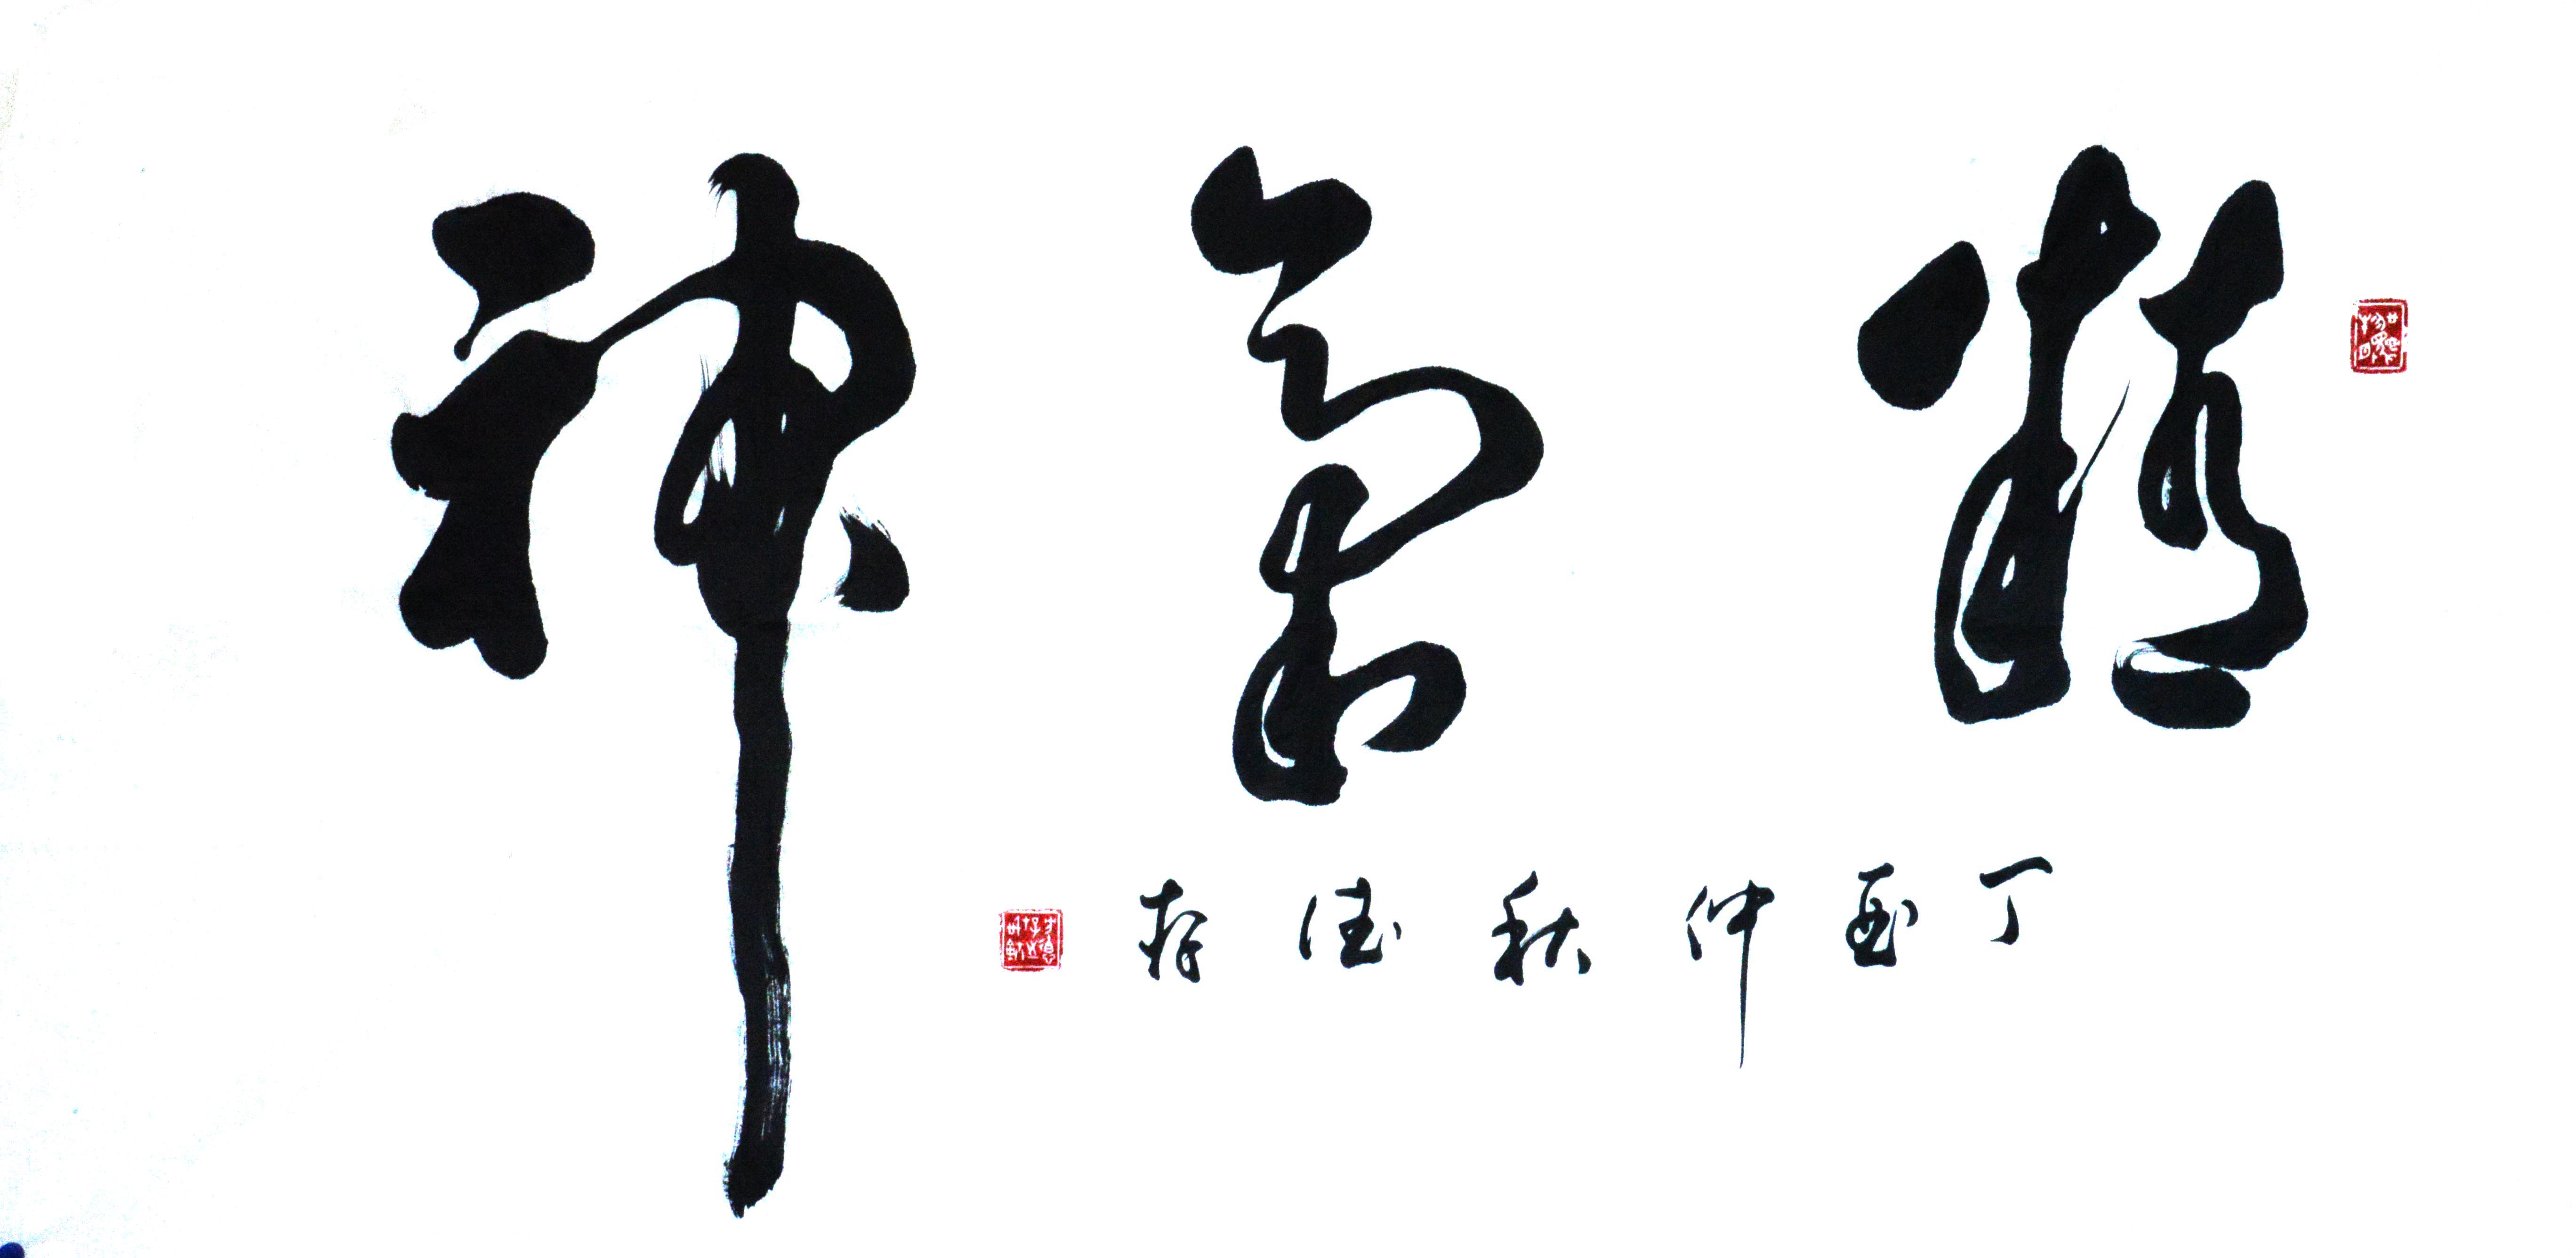 精氣神
丁酉仲秋德存